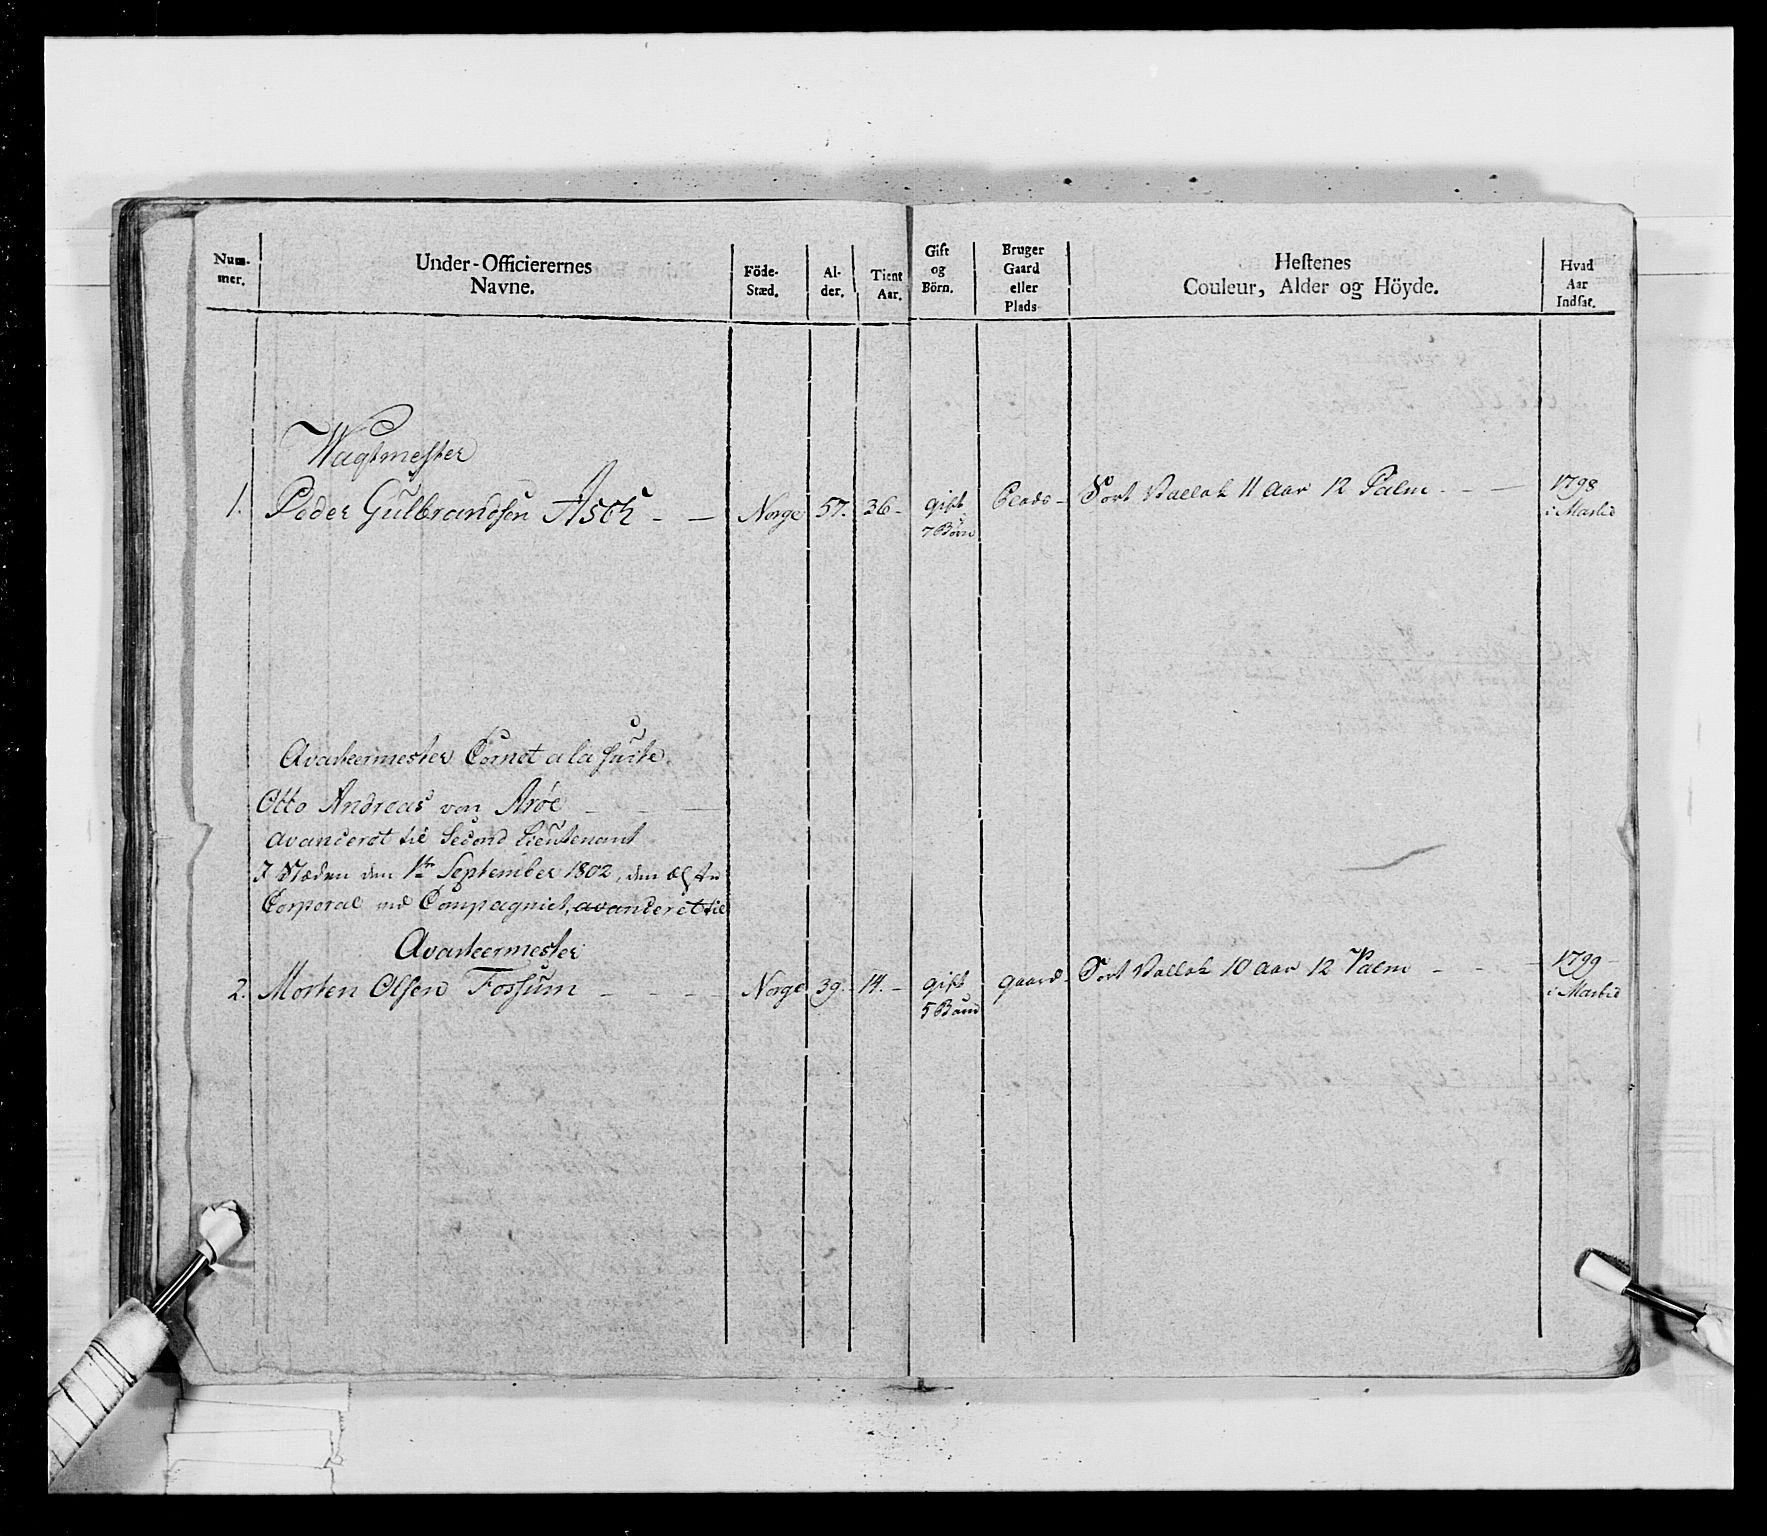 Num-
mer.
Under-Officierernes
Navne.
Föde-
Stæd.
Al-
der.
Tient
Aar.
Gift
og
Börn.
Bruger
Gaard
eller
Plads
Hestenes
Couleur, Alder og Höyde.
Hvad
Aar
Indsat.
Wagtmester
1. Peder Gulbrandsen Asch - - Norge 57. 36 - gift Plads - Sort Vallak 11 aar 12 Palm - - - 1798
7 Börn i Martid
Qvarteermester Cornet a la Suite
Otto Andreas von Aröe - - -
avanceret til Second Lieutenant
I Stæden den 1te September 1802, den
Corporal ved Compagniet, avanceret til
Qvarteermester
2. Morten Olsen Fossum - - - - Norge 39. 14. - gift gaard - Sort Vallak 10 aar 12 Palm - - - 1799 -
5 Börn i Martid